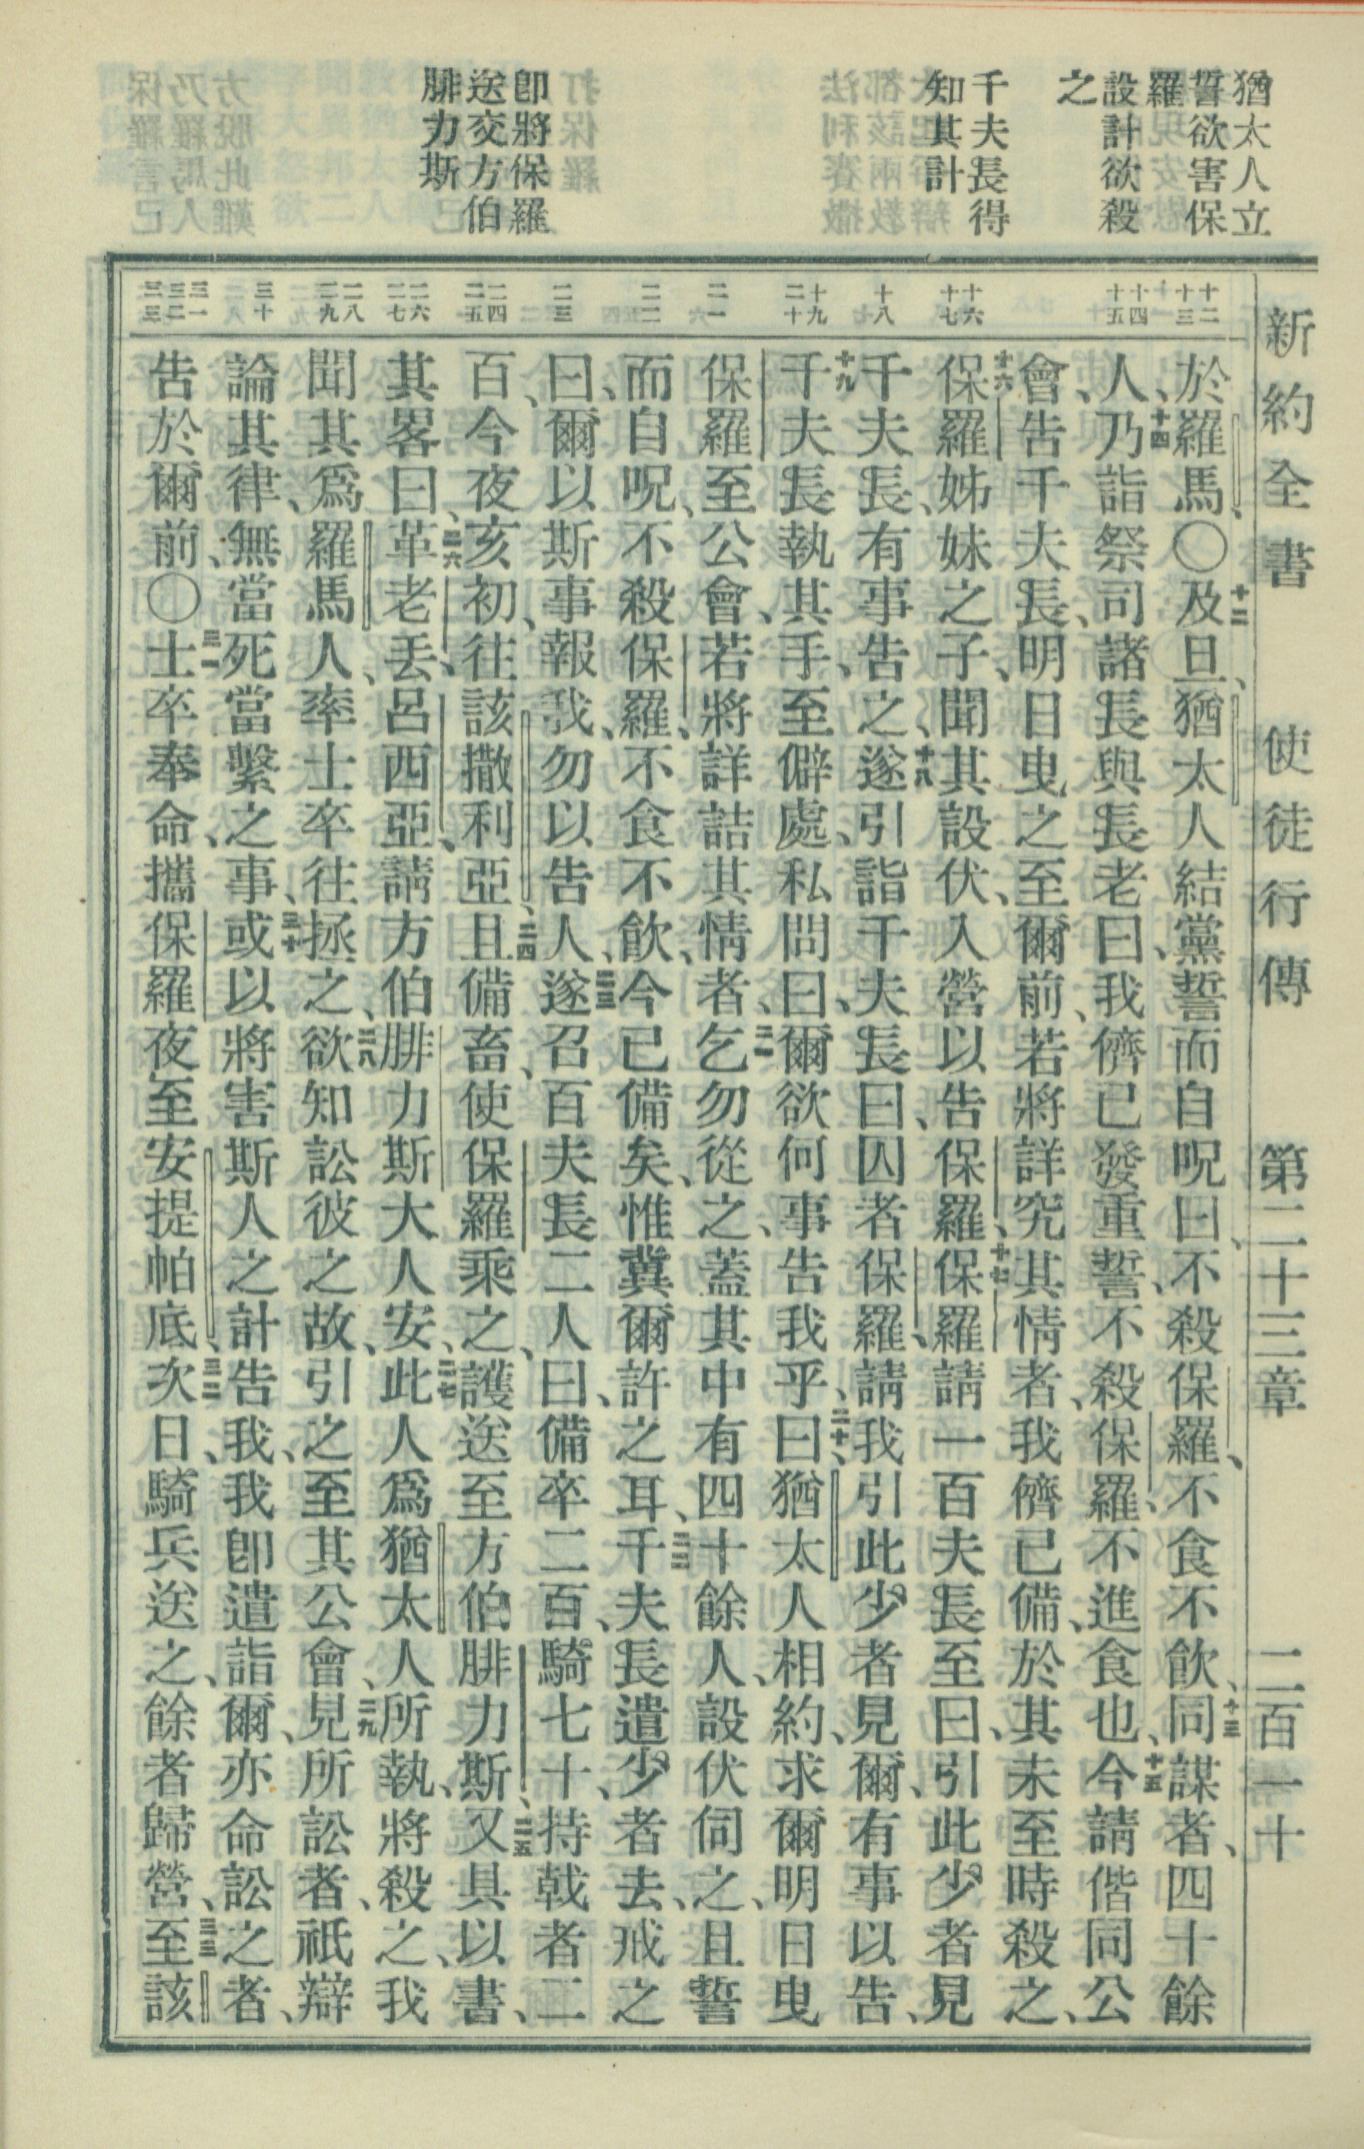 新約全書 使徒行傳 第二十三章 二百一十
猶太人立
誓欲害保
羅
設計欲殺
之
千夫長得
知其計
卽將保羅
送交方伯
腓力斯
十二 十三
十四 十五
十六 十七
十八
十九 二十
二一
二二
二三
二四 二五
二六 二七
二八 二九
三十
三一 三二 三三
於羅馬、〇十二及旦、猶太人結黨、誓而自呪曰、不殺保羅、不食不飮、十三同謀者、四十餘
人、十四乃詣祭司諸長與長老曰、我儕已發重誓、不殺保羅、不進食也、十五今請偕同公
會、告千夫長、明日曳之至爾前、若將詳究其情者、我儕已備、於其未至時殺之、
十六保羅姊妹之子、聞其設伏、入營以告保羅、十七保羅請一百夫長至曰、引此少者見
千夫長、有事告之、十八遂引詣千夫長曰、囚者保羅、請我引此少者見爾、有事以告、
十九千夫長執其手、至僻處、私問曰、爾欲何事告我乎、二十曰、猶太人相約、求爾明日曳
保羅至公會、若將詳詰其情者、二一乞勿從之、蓋其中有四十餘人、設伏伺之、且誓
而自呪、不殺保羅、不食不飮、今已備矣、惟冀爾許之耳、二二千夫長遣少者去、戒之
曰、爾以斯事報我、勿以告人、二三遂召百夫長二人曰、備卒二百、騎七十、持戟者二
百、今夜亥初、往該撒利亞、二四且備畜、使保羅乘之、護送至方伯腓力斯、二五又具以書、
其畧曰、二六革老丟呂西亞、請方伯腓力斯大人安、二七此人爲猶太人所執、將殺之、我
聞其爲羅馬人、率士卒往拯之、二八欲知訟彼之故、引之至其公會、二九見所訟者、祇辯
論其律、無當死當繫之事、三十或以將害斯人之計告我、我卽遣詣爾、亦命訟之者、
告於爾前、〇三一士卒奉命、攜保羅夜至安提帕底、三二次日、騎兵送之、餘者歸營、三三至該